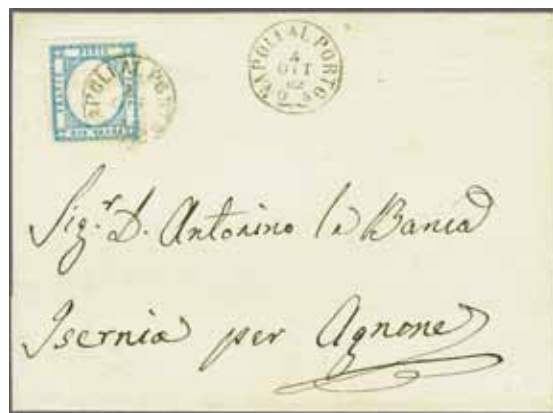 NAPOLI AL PORTO
4
OTT
62
POSTE
NAPOLI AL PORTO
Sig.r D. Antonino la Banca
Isernia per Agnone